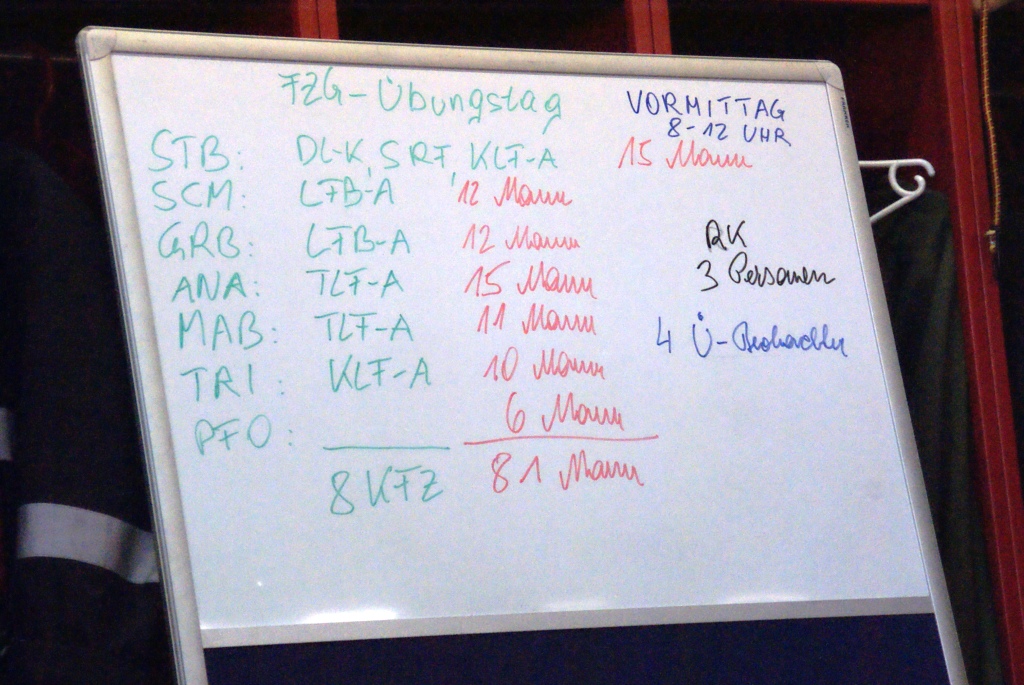 FZG-Übungstag
VORMITTAG
8-12 UHR
STB: DL-K, SRF, KLF-A 15 Mann
SCM: LFB-A 12 Mann
GRB: LFB-A 12 Mann
ANA: TLF-A 15 Mann
MAB: TLF-A 11 Mann
TRI: KLF-A 10 Mann
PFO: 6 Mann
8 KFZ 81 Mann
RK
3 Personen
4 Ü-Beobachter